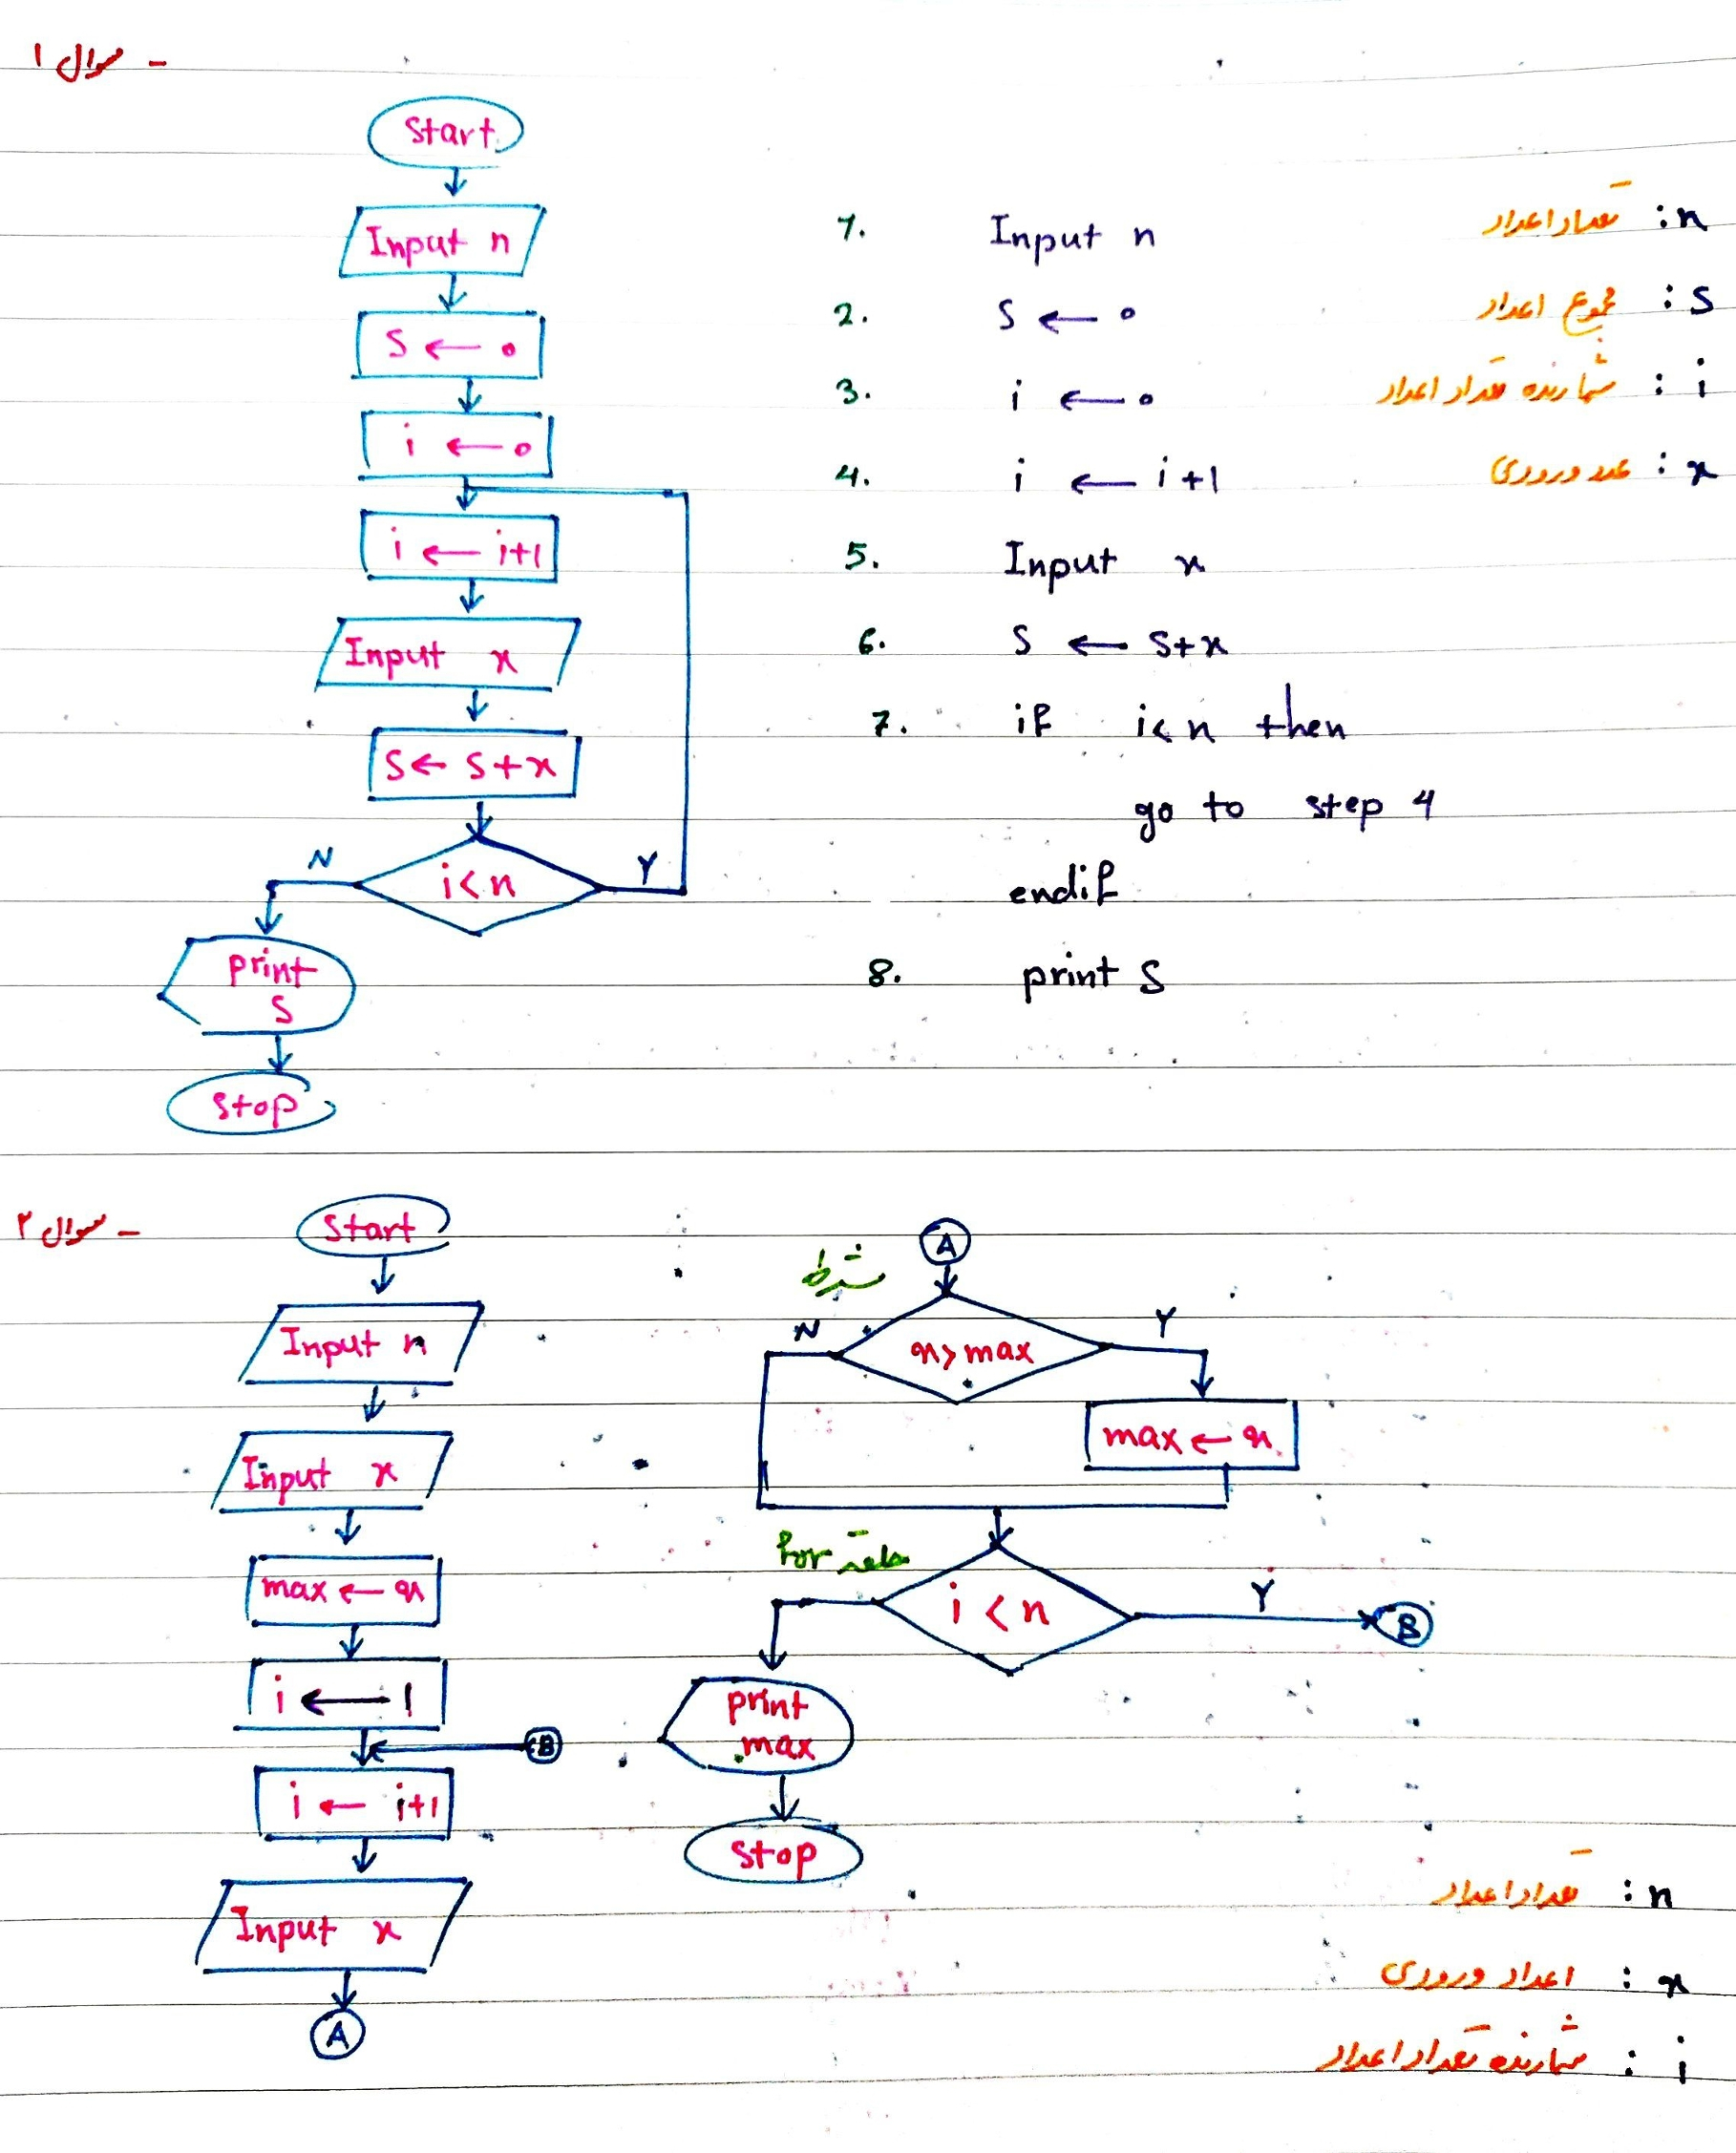 سوال ۱ -
Start
Input n
S ← 0
i ← 0
i ← i+1
Input x
S ← S+x
i < n
N
Y
print
S
Stop
1. Input n
2. S ← 0
3. i ← 0
4. i ← i+1
5. Input x
6. S ← S+x
7. if i < n then
go to step 4
endif
8. print S
n: تعداد اعداد
S: مجموع اعداد
i: شمارنده تعداد اعداد
x: عدد ورودی
سوال ۲ -
Start
Input n
Input x
max ← x
i ← 1
B
i ← i+1
Input x
A
A
شرط
x > max
N
Y
max ← x
حلقه for
i < n
Y
B
print
max
Stop
n: تعداد اعداد
x: اعداد ورودی
i: شمارنده تعداد اعداد